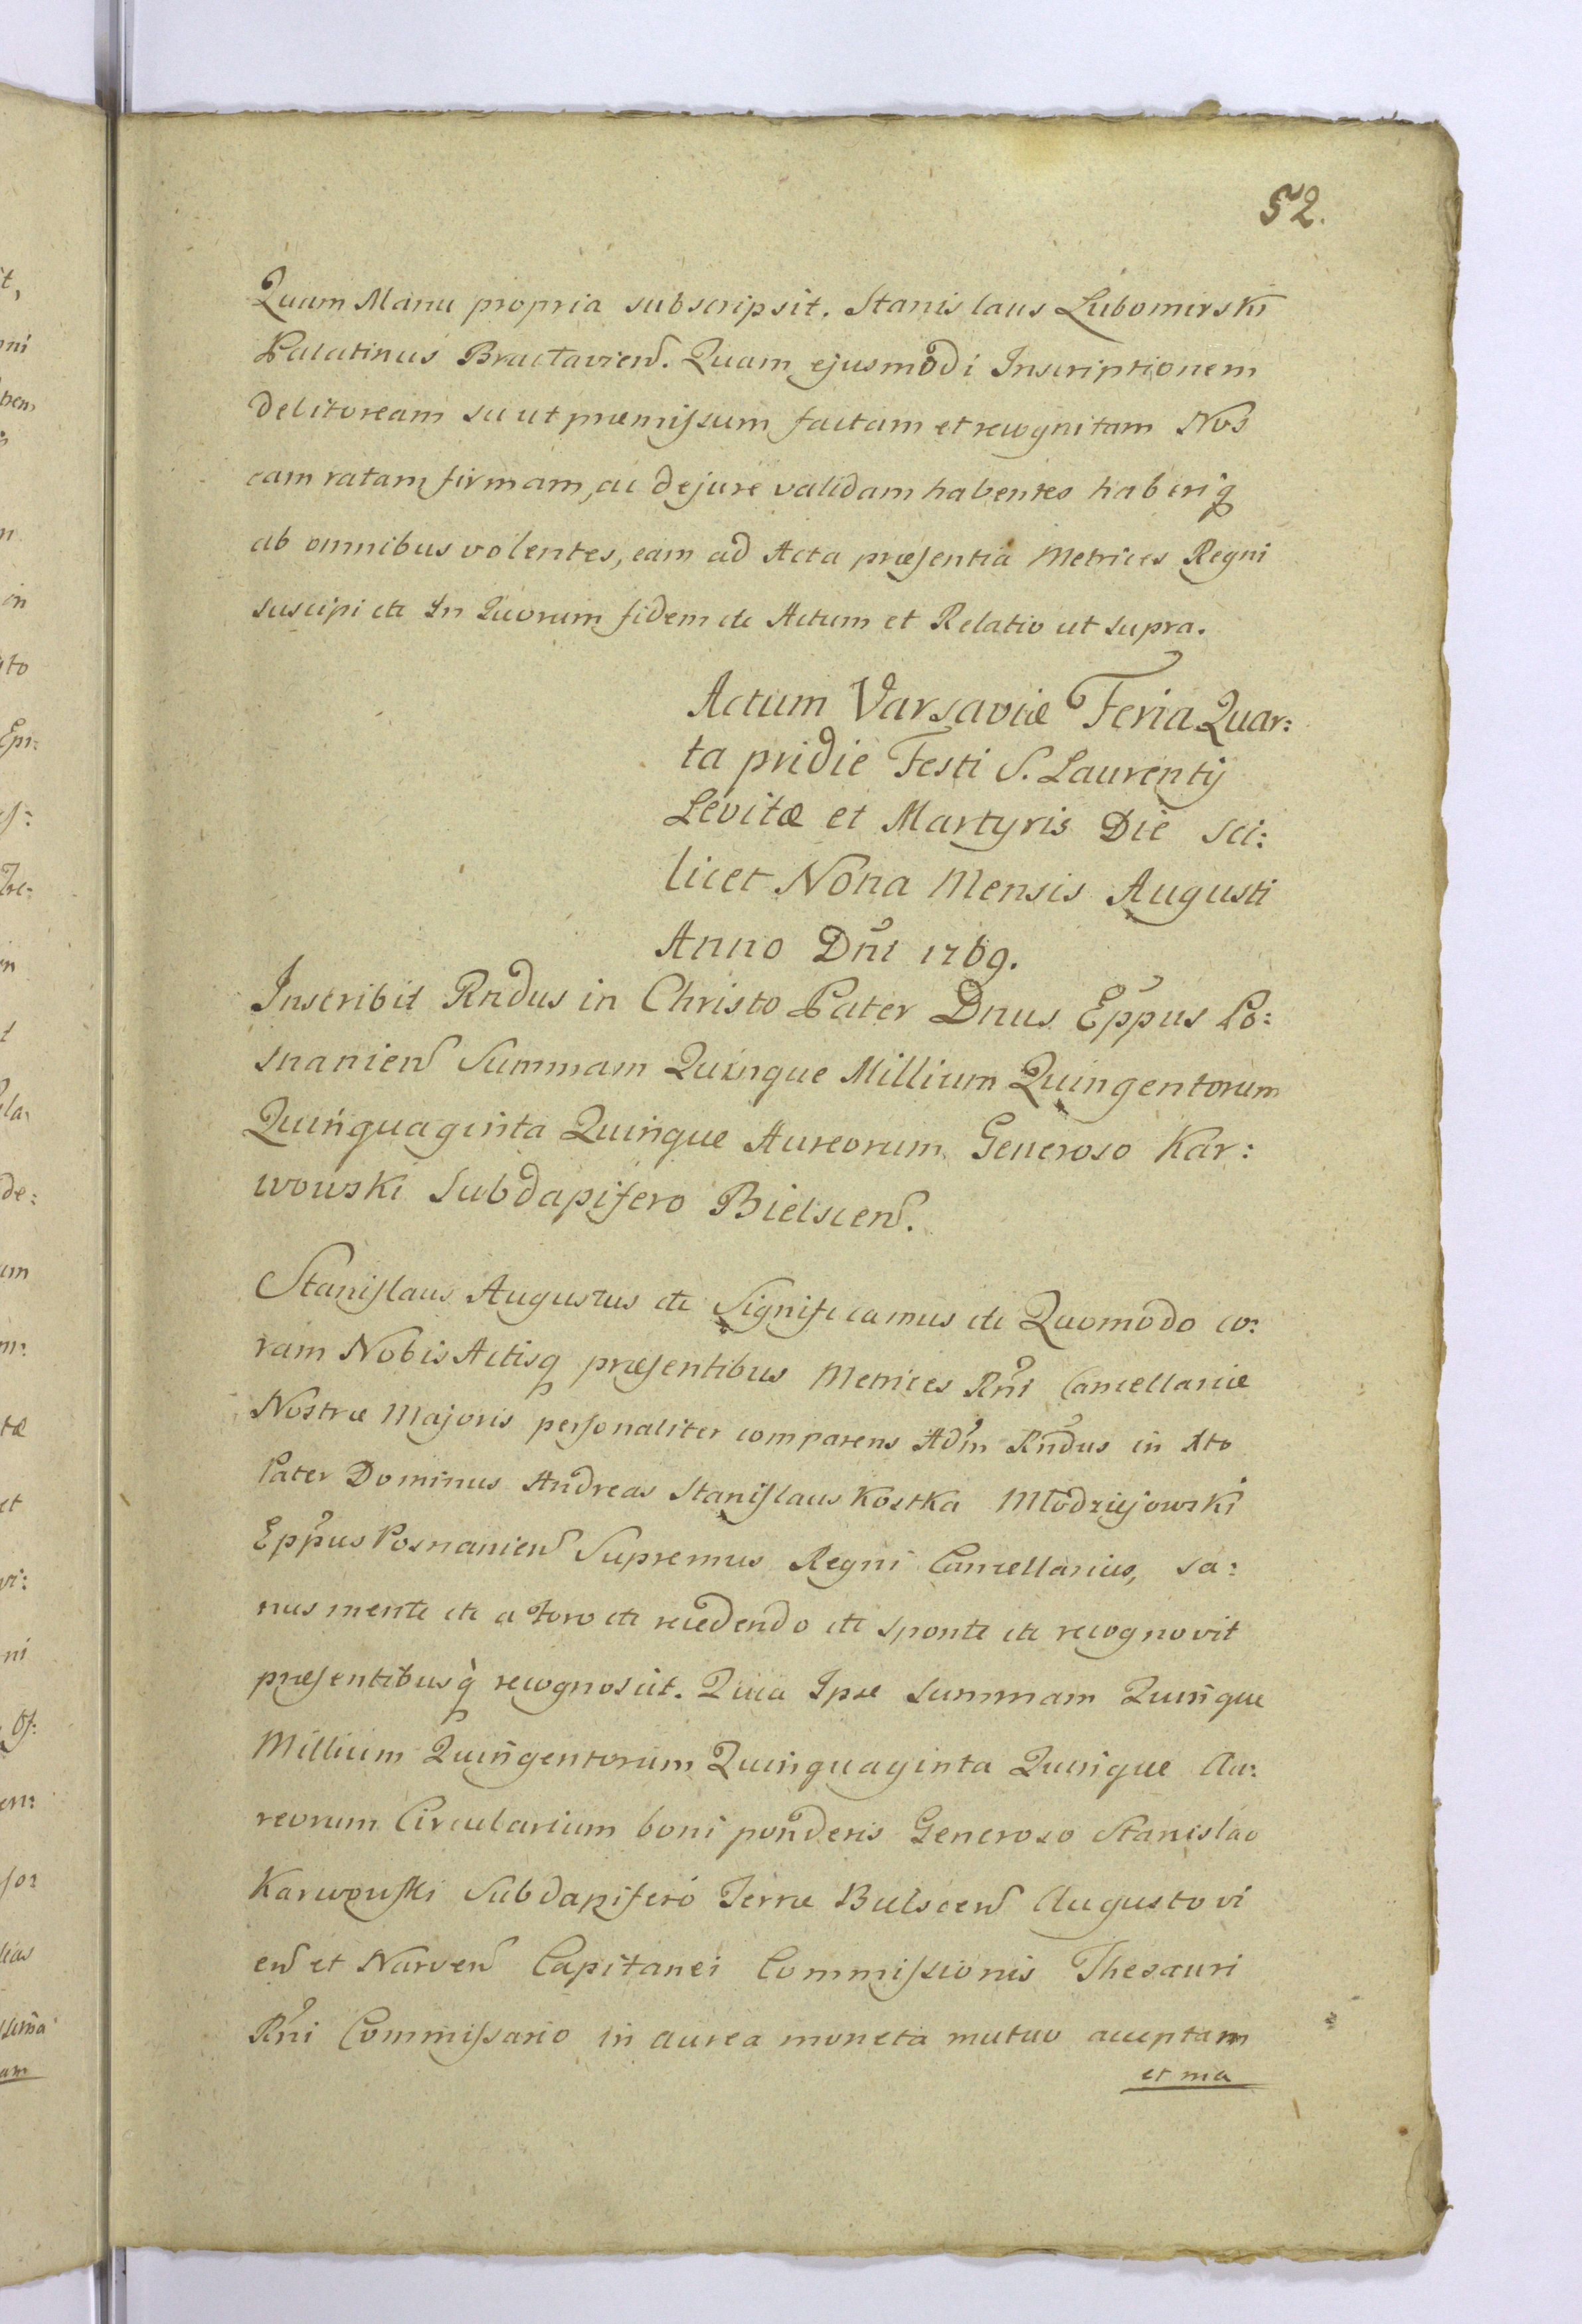 52.
Quam Manu propria subscripsit. Stanislaus Lubomirski
Palatinus Braclavien. Quam ejusmodi Inscriptionem
delitoream sic ut præmissum factam et recognitam Nos
eam ratam firmam, ac de jure validam habentes haberiq
ab omnibus volentes, eam ad Acta præsentia Metrices Regni
suscipi etc In Quorum fidem etc Actum et Relatio ut supra.
Actum Varsaviæ Feria Quar:
ta pridie Festi S. Laurentij
Levitæ et Martyris Die sci:
licet Nona Mensis Augusti
Anno Dni 1769.
Inscribit Rndus in Christo Pater Dnus Eppus Po:
snanien Summam Quinque Millium Quingentorum
Quinquaginta Quinque Aureorum Generoso Kar:
wowski Subdapifero Bielscen.
Stanislaus Augustus etc Significamus etc Quomodo co:
ram Nobis Actisq præsentibus Metrices Rni Cancellariæ
Nostræ Majoris personaliter comparens Adm Rndus in Xto
Pater Dominus Andreas Stanislaus Kostka Młodziejowski
Eppus Posnanien Supremus Regni Cancellarius, sa:
nus mente etc a foro etc recedendo etc sponte etc recognovit
præsentibusq recognoscit. Quia Ipse summam Quinque
Millium Quingentorum Quinquaginta Quinque Au:
reorum Circularium boni ponderis Generoso Stanislao
Karwowski Subdapifero Terræ Bielscen Augustovi
en et Narven Capitanei Commissionis Thesauri
Rni Commissario in aurea moneta mutuo acceptam
et ma